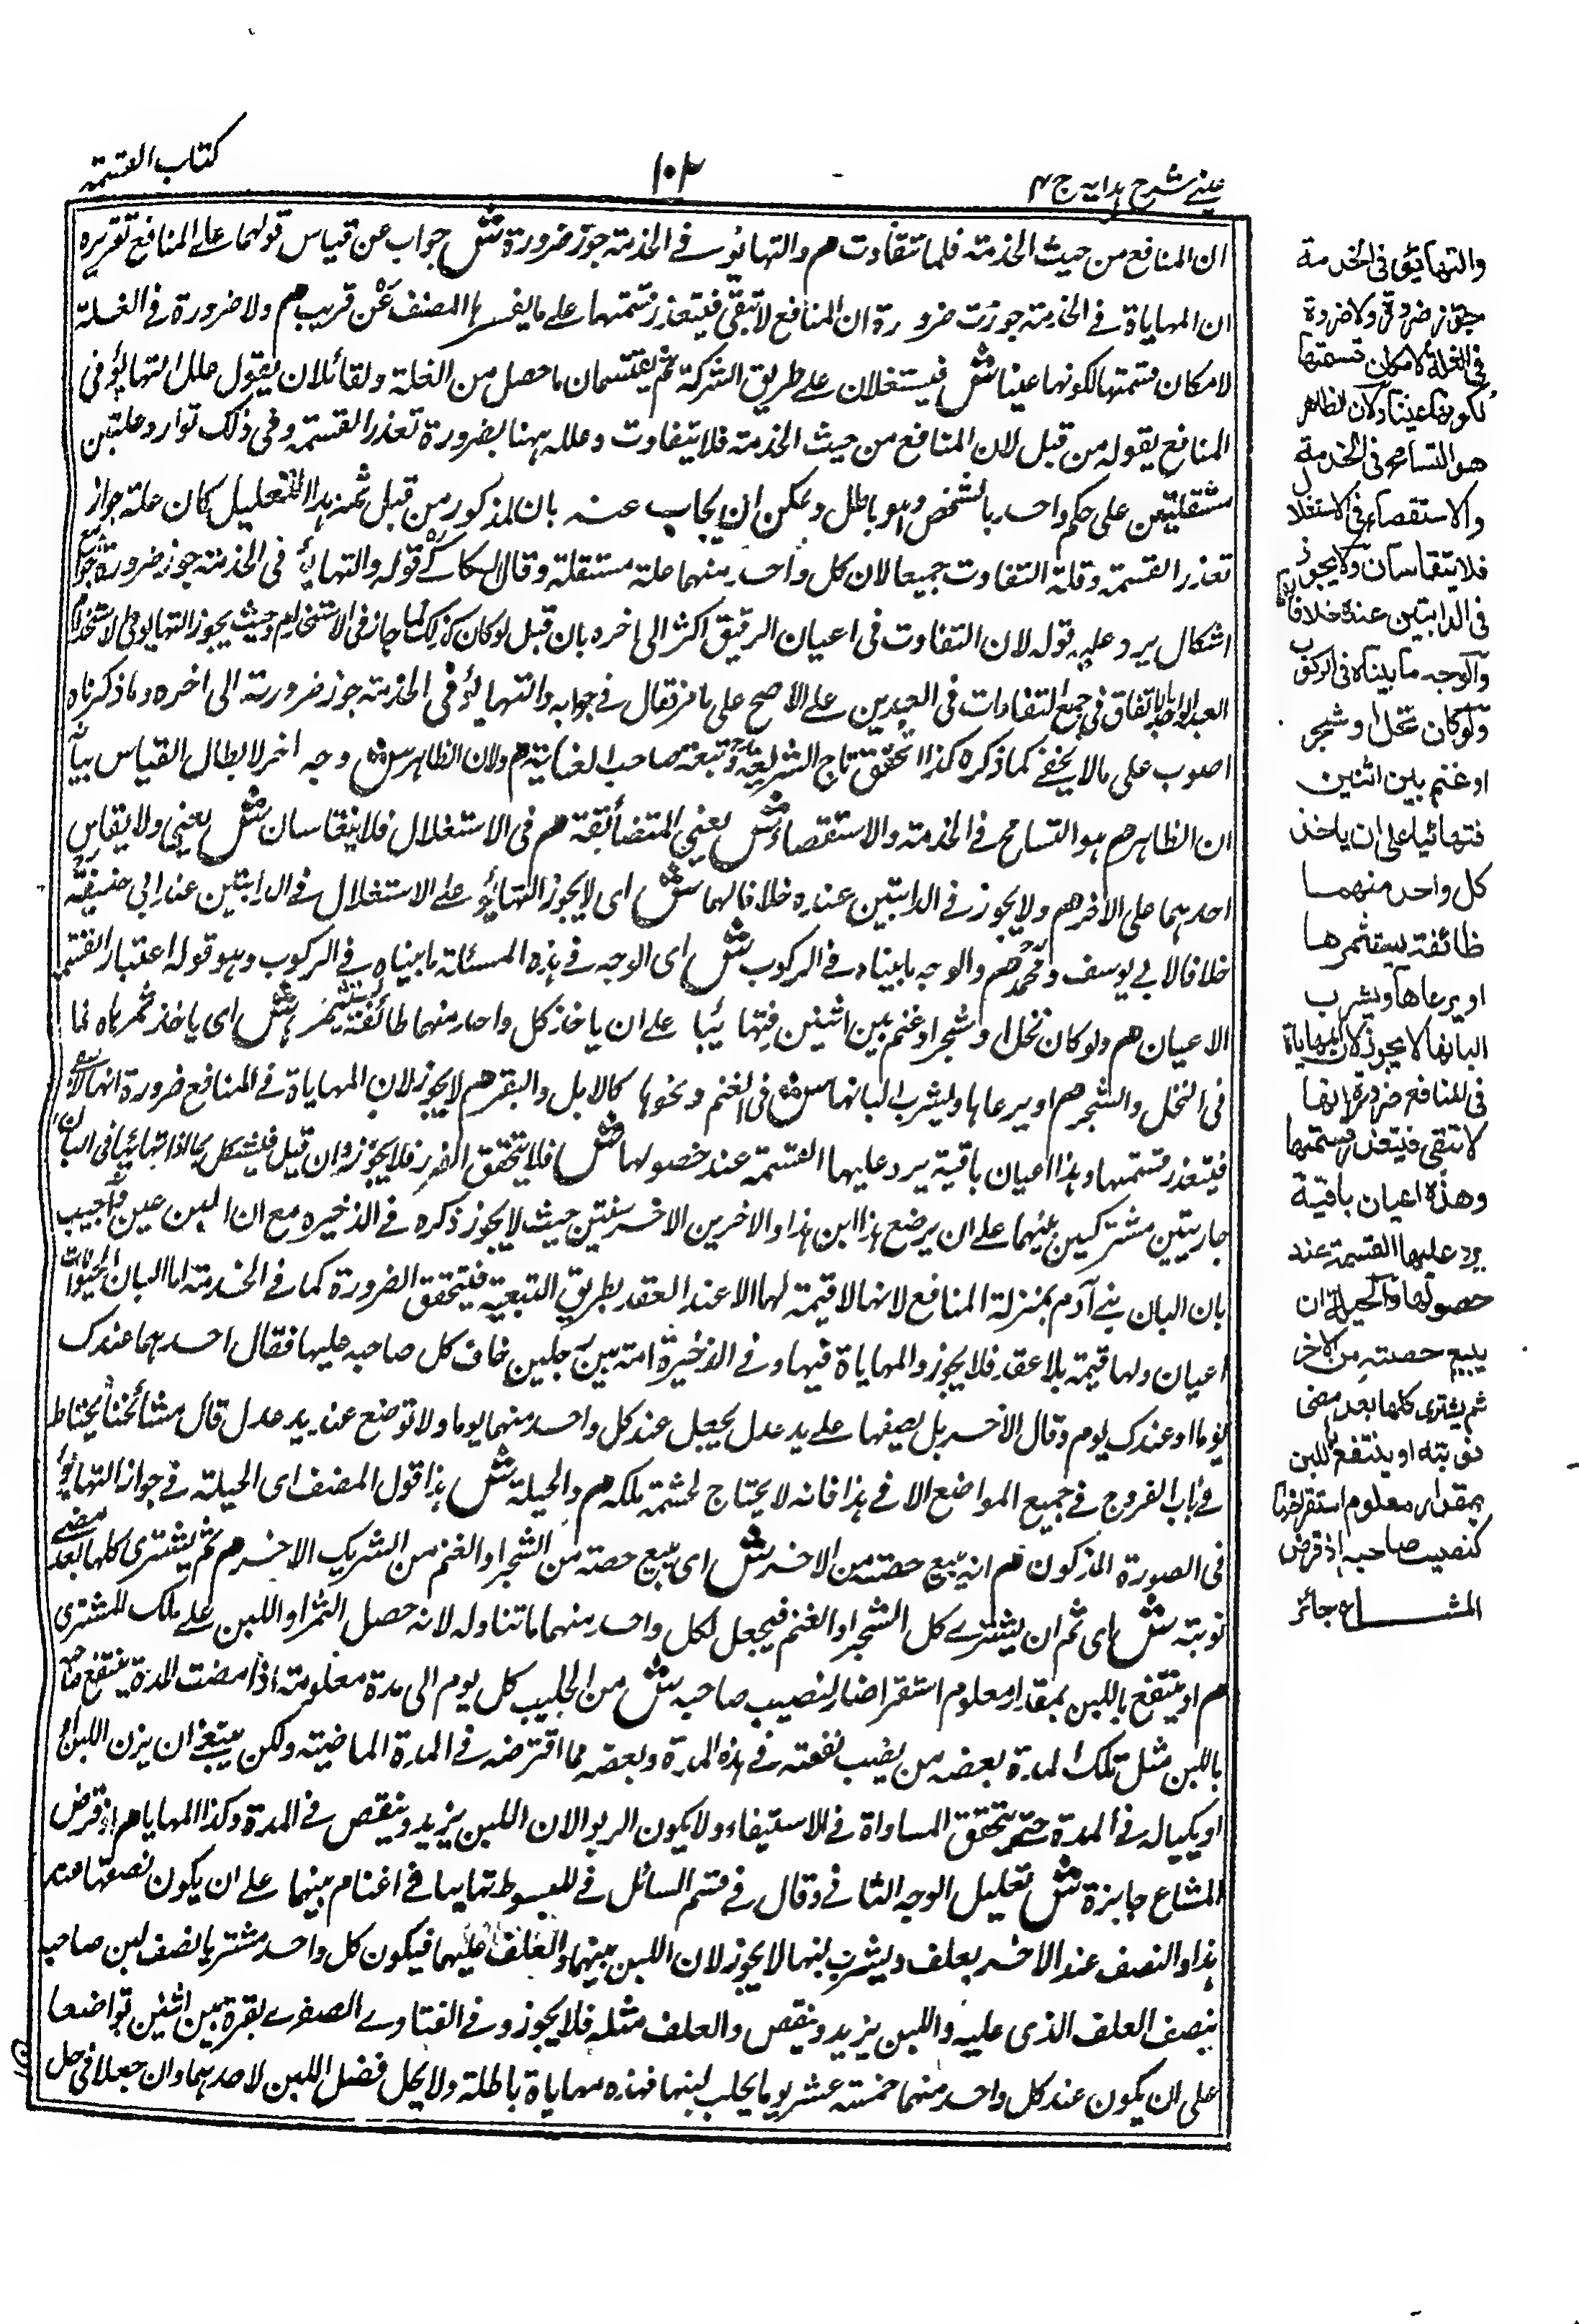 عینی شرح ہدایہ ج ۴
۱۰۲
کتاب القسمة
ان المنافع من حیث الخدمة فلما تتفاوت هم والتهایؤ فی الخدمة جوز ضرورة ش جواب عن قیاس قولهما علی المنافع تقریره
ان المهایاة فی الخدمة جوزت ضرورة ان المنافع لا تبقی فیتعذر قسمتها علی ما یفسرہا المصنف عن قریب هم ولا ضرورة فی الغلة
لامکان قسمتها لکونها عینا ش فیستغلان علی طریق الشرکة ثم یقتسمان ما حصل من الغلة ولقائل ان یقول علل التهایؤ فی
المنافع بقوله من قبل لان المنافع من حیث الخدمة فلا یتفاوت وعلله ههنا بضرورة تعذر القسمة وفی ذلک توارد علتین
مستقلتین علی حکم واحد بالشخص وهو باطل ویمکن ان یجاب عنه بان المذکور من قبل تمة هذا التعلیل کان علة جواز
تعذر القسمة وقلة التفاوت جمیعا لان کل واحد منهما علة مستقلة وقال الکاکی قوله والتهایؤ فی الخدمة جوز ضرورة جواب
اشکال یرد علیه قوله لان التفاوت فی اعیان الرقیق اکثر الی اخره بان قیل لو کان کذلک لما جاز فی الاستخدام وحیث یجوز التهایؤ فی الاستخدام
العبد الواحد بالاتفاق فی جمیع التفاوت فی العبدین علی الاصح علی ما مر فقال فی جوابه والتهایؤ فی الخدمة جوز ضرورة الی اخره وما ذکرناه
اصوب علی ما لا یخفی کما ذکره کذا تحقق تاج الشریعة وتبعه صاحب العنایة هم ولان الظاهر ش وجه اخر لابطال القیاس بیانه
ان الظاهر هم هو التسامح فی الخدمة والاستقصاء ش یعنی المتضایقة هم فی الاستغلال فلا یتقاسان ش یعنی ولا یقاس
احدهما علی الاخر هم ولا یجوز فی الدابتین عنده خلافا لهما ش ای لا یجوز التهایؤ علی الاستغلال فی الدابتین عند ابی حنیفة
خلافا لابی یوسف ومحمد هم والوجه ما بیناه فی الرکوب ش ای الوجه فی هذه المسئلة ما بیناه فی الرکوب وهو قوله اعتبار القسمة
الاعیان هم ولو کان نخل او شجر او غنم بین اثنین فتهایئا علی ان یاخذ کل واحد منهما طائفة یستثمرها ش ای یاخذ ثمرها نما
فی النخل والشجر هم او یرعاها ویشرب البانها ش فی الغنم ونحوها کالابل والبقر هم لا یجوز لان المهایاة فی المنافع ضرورة انها لا تبقی
فیتعذر قسمتها وهذا اعیان باقیة یرد علیها القسمة عند حصولها ش فلا یتحقق الضرر فلا یجوز وان قیل فیشکل بما اذا تهایئا فی البان
جاریتین مشترکین بینهما علی ان یرضع هذا ابن هذا والاخرین الاخر سنتین حیث لا یجوز ذکره فی الذخیرة مع ان اللبن عین واجیب
بان البان بنی آدم بمنزلة المنافع لانها لا قیمة لها الا عند العقد بطریق التبعیة فیتحقق الضرورة کما فی الخدمة اما البان الحیوانات
اعیان ولها قیمة بلا عقد فلا یجوز والمهایاة فیها وفی الذخیرة امة بین رجلین خاف کل صاحبه علیها فقال احدهما عندک
یوما وعندک یوم وقال الاخر بل یضعها علی ید عدل یجعل عند کل واحد منهما یوما ولا توضع عند ید عدل قال مشائخنا یحتاط
فی باب الفروج فی جمیع المواضع الا فی هذا فانه لا یحتاج لحشمة ملکه هم والحیلة ش هذا قول المصنف ای الحیلة فی جواز التهایؤ
فی الصورة المذکورة هم ان یبیع حصته من الاخر ش ای یبیع حصته من الشجر او الغنم من الشریک الاخر هم ثم یشتری کلها بعد مضی
نوبته ش ای ثم ان یشتری کل الشجر او الغنم فیجعل لکل واحد منهما ما تناوله لانه حصل الثمر او اللبن علی ملک المشتری
هم او ینتفع باللبن بمقدار معلوم استقراضا لنصیب صاحبه ش من الحلیب کل یوم الی مدة معلومة اذا مضت المدة ینتفع صاحبه
باللبن مثل تلک المدة بعضه من نصیب نفسه فی هذه المدة وبعضه مما اقترضه فی المدة الماضیة ولکن ینبغی ان یزن اللبن
او یکیاله فی المدة حتی یتحقق المساواة فی الاستیفاء ولا یکون الربو الان اللبن یزید وینقص فی المدة وکذا المهایا هم اذ قرض
المشاع جایزة ش تعلیل الوجه الثانی وقال فی قسم السائل فی المبسوط تهایا فی اغنام بینهما علی ان یکون نصفها عند
هذا والنصف عند الاخر یعلف ویشرب لبنها لا یجوز لان اللبن بینهما والعلف علیهما فیکون کل واحد مشتریا نصف لبن صاحبه
بنصف العلف الذی علیه واللبن یزید وینقص والعلف مثله فلا یجوز وفی الفتاوی الصغری بقرة بین اثنین تواضعا
علی ان یکون عند کل واحد منهما خمسة عشر یوما یحلب لبنها فهذه مهایاة باطلة ولا یحل فضل اللبن لاحدهما وان جعلا فی حل
والتهایؤ فی الخدمة
جوز ضرورة ولا ضرورة
فی الغلة لامکان قسمتها
لکونها عینا ولان الظاهر
هو التسامح فی الخدمة
والاستقصاء فی الاستغلال
فلا یتقاسان ولا یجوز
فی الدابتین عنده خلافا لهما
والوجه ما بیناه فی الرکوب
ولو کان نخل او شجر
او غنم بین اثنین
فتهائیا علی ان یاخذ
کل واحد منهما
طائفة یستثمرها
او یرعاها ویشرب
البانها لا یجوز لان المهایاة
فی المنافع ضرورة انها
لا تبقی فیتعذر قسمتها
وهذه اعیان باقیة
یرد علیها القسمة عند
حصولها والحیلة ان
یبیع حصته من الاخر
ثم یشتری کلها بعد مضی
نوبته او ینتفع باللبن
بمقدار معلوم استقراضا
لنصیب صاحبه اذ قرض
المشاع جائز